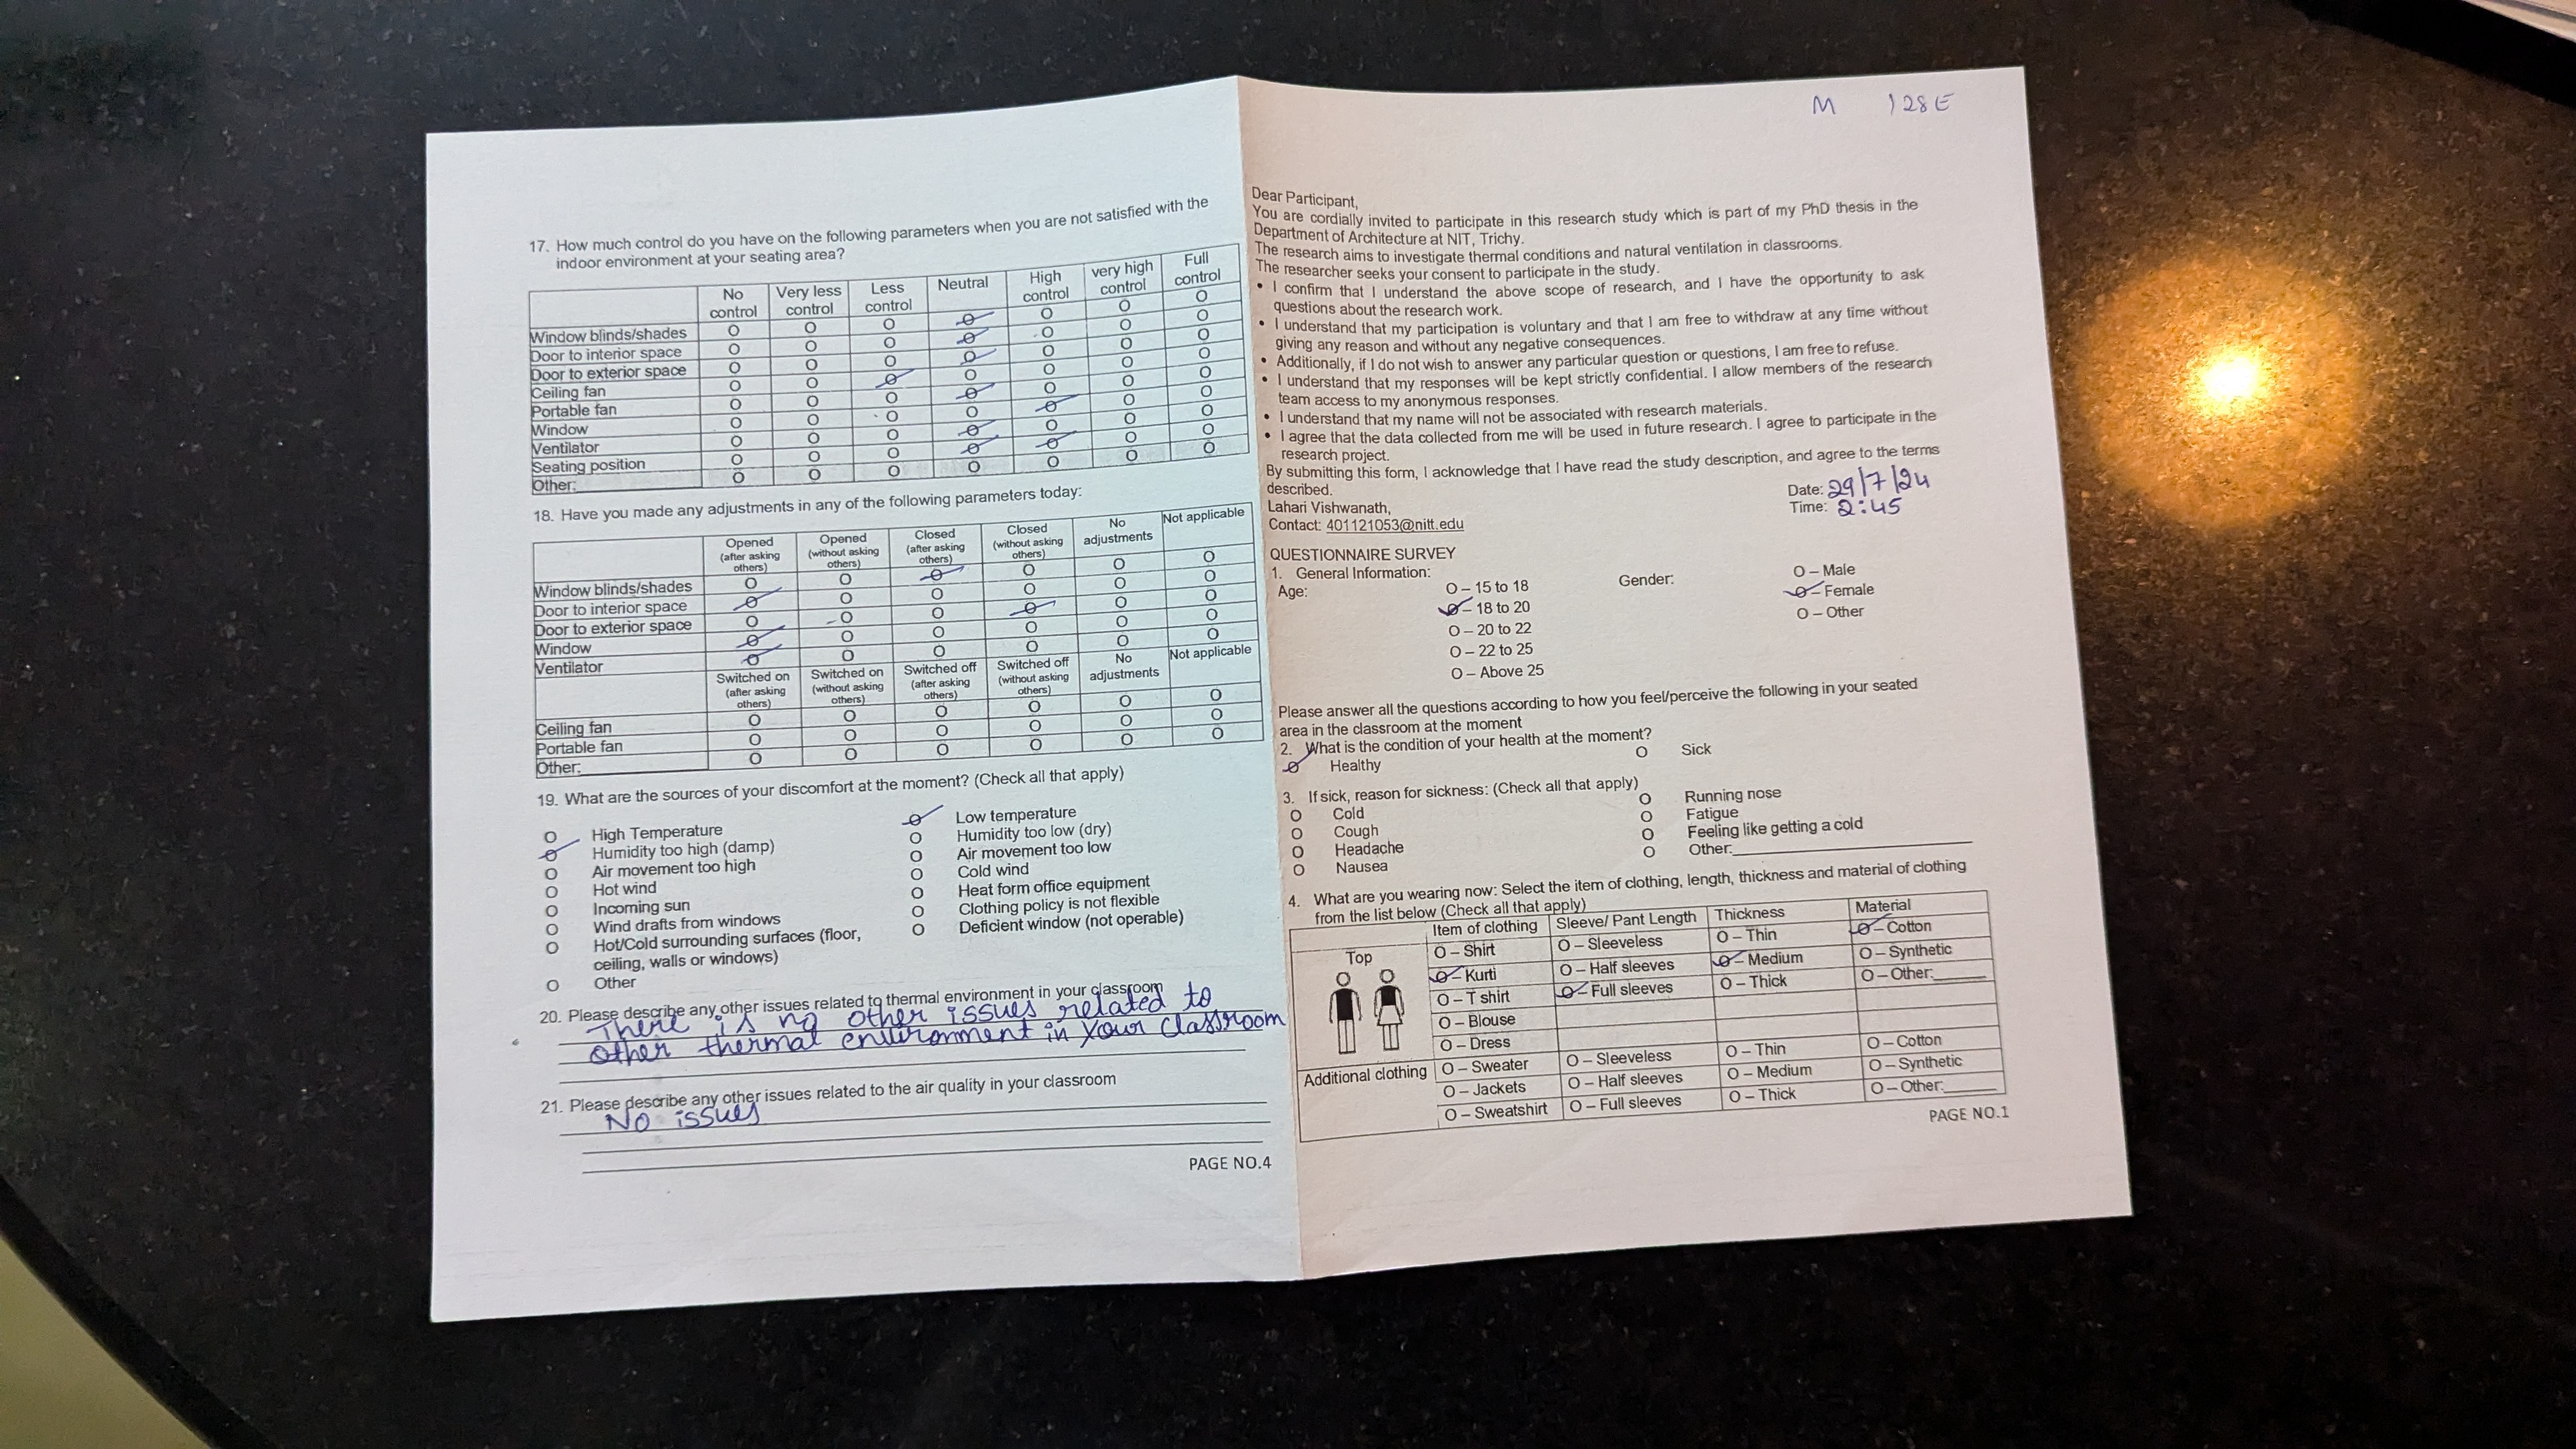 17. How much control do you have on the following parameters when you are not satisfied with the
indoor environment at your seating area?
No control Very less control Less control Neutral High control very high control Full control
Window blinds/shades O O O O O O O
Door to interior space O O O O O O O
Door to exterior space O O O O O O O
Ceiling fan O O O O O O O
Portable fan O O O O O O O
Window O O O O O O O
Ventilator O O O O O O O
Seating position O O O O O O O
Other: O O O O O O O
18. Have you made any adjustments in any of the following parameters today:
Opened (after asking others) Opened (without asking others) Closed (after asking others) Closed (without asking others) No adjustments Not applicable
Window blinds/shades O O O O O O
Door to interior space O O O O O O
Door to exterior space O O O O O O
Window O O O O O O
Ventilator O O O O O O
Switched on (after asking others) Switched on (without asking others) Switched off (after asking others) Switched off (without asking others) No adjustments Not applicable
Ceiling fan O O O O O O
Portable fan O O O O O O
Other: O O O O O O
19. What are the sources of your discomfort at the moment? (Check all that apply)
O High Temperature O Low temperature
O Humidity too high (damp) O Humidity too low (dry)
O Air movement too high O Air movement too low
O Hot wind O Cold wind
O Incoming sun O Heat form office equipment
O Wind drafts from windows O Clothing policy is not flexible
O Hot/Cold surrounding surfaces (floor, O Deficient window (not operable)
ceiling, walls or windows)
O Other
20. Please describe any other issues related to thermal environment in your classroom
There is no other issues related to
other thermal environment in your classroom
21. Please describe any other issues related to the air quality in your classroom
No issues
PAGE NO.4
M 128E
Dear Participant,
You are cordially invited to participate in this research study which is part of my PhD thesis in the
Department of Architecture at NIT, Trichy.
The research aims to investigate thermal conditions and natural ventilation in classrooms.
The researcher seeks your consent to participate in the study.
• I confirm that I understand the above scope of research, and I have the opportunity to ask
questions about the research work.
• I understand that my participation is voluntary and that I am free to withdraw at any time without
giving any reason and without any negative consequences.
• Additionally, if I do not wish to answer any particular question or questions, I am free to refuse.
• I understand that my responses will be kept strictly confidential. I allow members of the research
team access to my anonymous responses.
• I understand that my name will not be associated with research materials.
• I agree that the data collected from me will be used in future research. I agree to participate in the
research project.
By submitting this form, I acknowledge that I have read the study description, and agree to the terms
described.
Date: 29/7/24
Lahari Vishwanath,
Time: 2:45
Contact: 401121053@nitt.edu
QUESTIONNAIRE SURVEY
1. General Information:
Age: O – 15 to 18 Gender: O – Male
O – 18 to 20 O – Female
O – 20 to 22 O – Other
O – 22 to 25
O – Above 25
Please answer all the questions according to how you feel/perceive the following in your seated
area in the classroom at the moment
2. What is the condition of your health at the moment?
O Healthy O Sick
3. If sick, reason for sickness: (Check all that apply)
O Cold O Running nose
O Cough O Fatigue
O Headache O Feeling like getting a cold
O Nausea O Other:
4. What are you wearing now: Select the item of clothing, length, thickness and material of clothing
from the list below (Check all that apply)
Item of clothing Sleeve/ Pant Length Thickness Material
Top O – Shirt O – Sleeveless O – Thin O – Cotton
O – Kurti O – Half sleeves O – Medium O – Synthetic
O – T shirt O – Full sleeves O – Thick O – Other:
O – Blouse
O – Dress
Additional clothing O – Sweater O – Sleeveless O – Thin O – Cotton
O – Jackets O – Half sleeves O – Medium O – Synthetic
O – Sweatshirt O – Full sleeves O – Thick O – Other:
PAGE NO.1